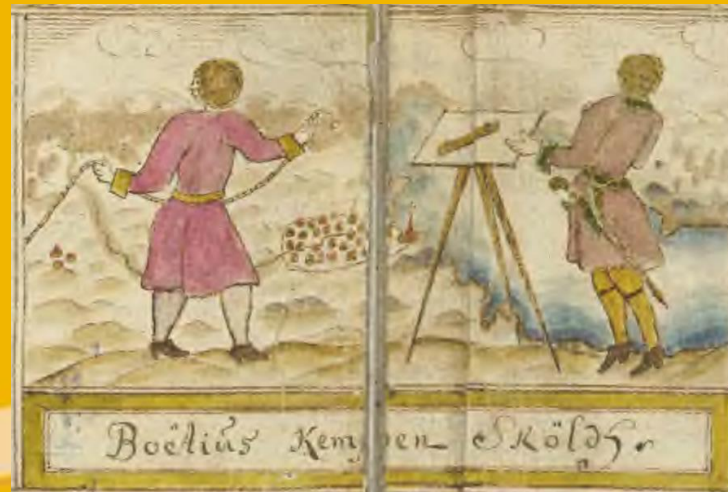 Boëtius Kempen Skölds.